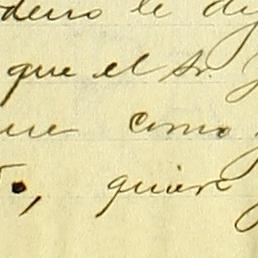 dero le di
que el Sr.
ue como
o, quiere